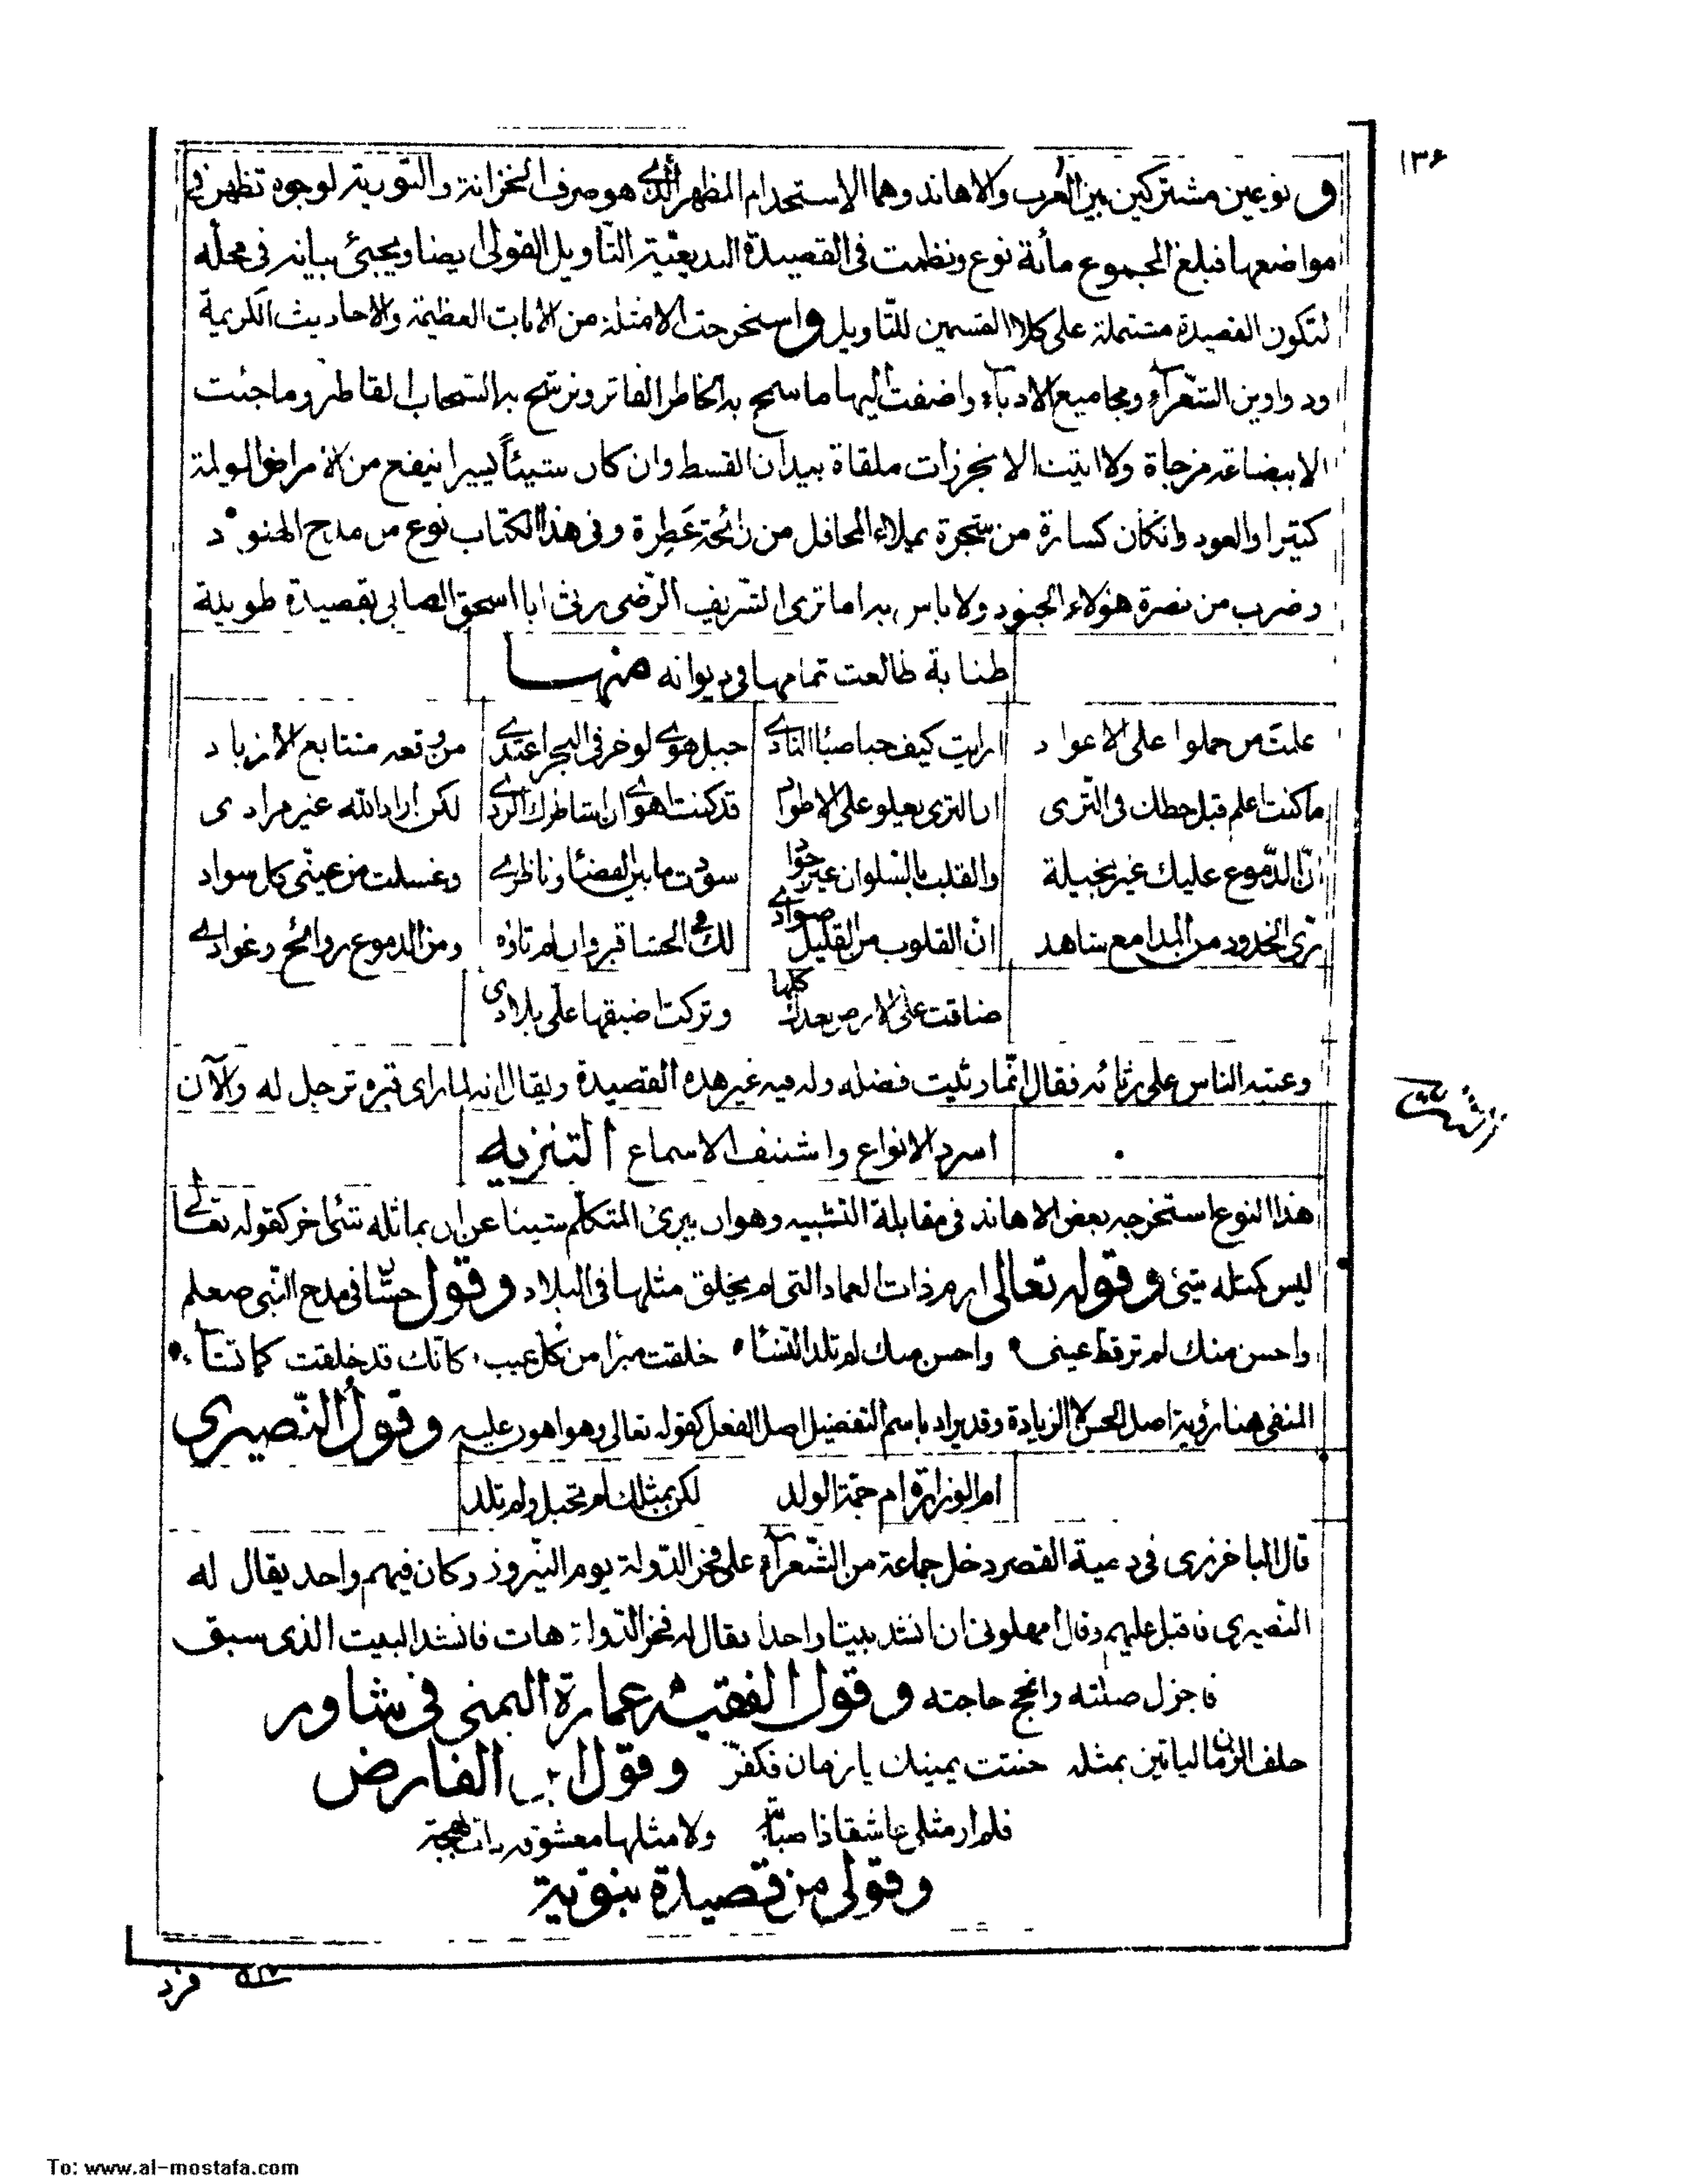 ١٣٤
و نوعين مشتركين بين العرب والاهاند وهما الاستخدام المظهر الذى هو صرف الخزانة والتورية لوجوه تظهر فى
مواضعها فبلغ المجموع مأنة نوع ونظمت فى القصيدة البديعية التأويل القولى ايضا ويجيئ بيانه فى محله
لتكون القصيدة مشتملة على كلا القسمين للتاويل واستخرجت الامثلة من الايات العظيمة والاحاديث الكريمة
ودواوين الشعرآء ومجاميع الادبآء واضفت اليها ما سمح به الخاطر الفاتر وترشح به السحاب القاطر وما جئت
الا ببضاعة مزجاة ولا اتيت الا بخرزات ملقاة بيد ان القسط وان كان شيئاً يسيرا ينفع من الامراض المولمة
كثيرا والعود وانكان كسارة من شجرة يملاء المحافل من رائحة عَطِرة وفى هذا الكتاب نوع من مدح الهنود
وضرب من نصرة هؤلاء الجنود ولا باس به اما ترى الشريف الرّضى رثى ابا اسحق الصابى بقصيدة طويلة
طنابة طالعت تمامها فى ديوانه منها
علمتَ من حملوا على الاعواد ارايت كيف خبا ضيا النادى جبل هوى لو خر فى البحر اغتدى من وقعه متتابع الازباد
ما كنت اعلم قبل حطك فى الثّرى ان الثرى يعلو على الاطواد قد كنت اهوى ان اشاطرك الردى لكن اراد الله غير مرادى
انّ الدّموع عليك غير بخيلة والقلب بالسلوان غير جواد سودت ما بين الفضا وناظرى وغسلت من عينى كل سواد
رى الخدود من المدامع شاهد انّ القلوب من الغليل صوادى لك فى الحشا قبر وان لم تاوه ومن الدموع روائح وغوادى
ضاقت على الارض بعدك كلها وتركت اضيقها على بلادى
وعتبه الناس على رثائه فقال انّما رثيت فضله وله فيه غير هذه القصيدة ويقال انه لما راى قبره ترجل له والآن
اسرد الانواع واشنف الاسماع التنزيه
هذا النوع استخرجه بعض الاهاند فى مقابلة التشبيه وهو ان يبرئ المتكلم شيئا عن ان يماثله شئ اخر كقوله تعالى
ليس كمثله شيئ وقوله تعالى ارم ذات العماد التى لم يخلق مثلها فى البلاد وقول حسّان فى مدح النّبى صعلم
واحسن منك لم ترقط عينى واحسن منك لم تلد النّسآ خلقت مبرا من كل عيب كانّك قد خلقت كما تشآء
المنفى هنا رؤية اصل الحسن لا الزيادة وقد يراد باسم التفضيل اصل الفعل كقوله تعالى وهو اهون عليه وقول النّصيرى
ام الوزارة ام جمّة الولد لكن بمثلك لم تحبل ولم تلد
قال الباخرزى فى دمية القصر دخل جماعة من الشّعرآء على فخر الدّولة يوم النّيروز وكان فيهم واحد يقال له
النّصيرى فاقبل عليهم وقال امهلونى ان انشد بيتا واحدا فقال له فخر الدّولة هات فانشد البيت الذى سبق
فاجزل صلته وانجح حاجته وقول الفقيه عمارة اليمنى فى شاور
حلف الزمان لياتين بمثله حنثت يمينك يا زمان فكفّر وقول ابن الفارض
فلم ار مثلى عاشقا ذا صبابة ولا مثلها معشوقة ذات بهجة
وقولى من قصيدة نبوية
فرد
To: www.al-mostafa.com